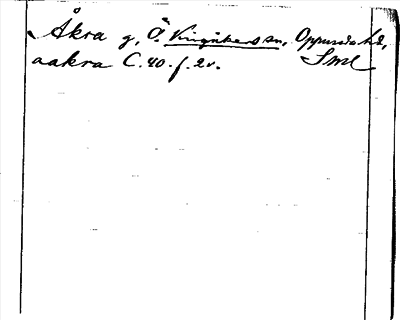 Åkra g, Ö. Vingåkers sn, Oppunda hd,
aakra C. 40. f. 2v. Sml